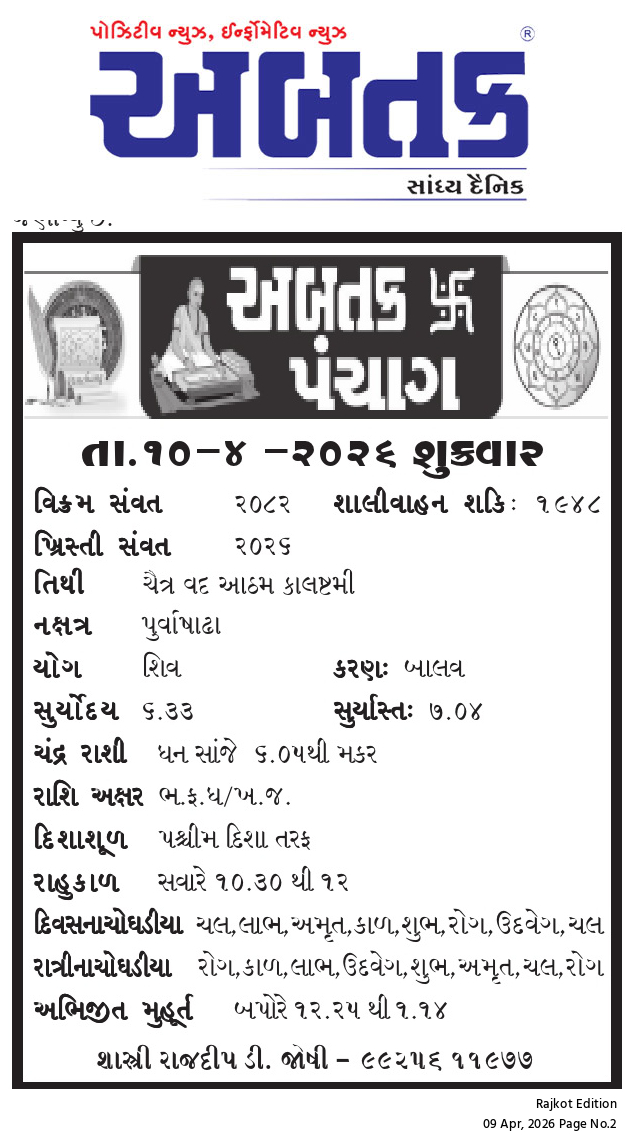 પોઝિટીવ ન્યુઝ, ઈર્ન્ફોમેટિવ ન્યુઝ
®
અબતક
સાંધ્ય દૈનિક
અબતક 卐
પંચાગ
તા.૧૦-૪ -૨૦૨૬ શુક્રવાર
વિક્રમ સંવત ૨૦૮૨ શાલીવાહન શકિ: ૧૯૪૮
ખ્રિસ્તી સંવત ૨૦૨૬
તિથી ચૈત્ર વદ આઠમ કાલાષ્ટમી
નક્ષત્ર પુર્વાષાઢા
યોગ શિવ કરણ: બાલવ
સુર્યોદય ૬.૩૩ સુર્યાસ્ત: ૭.૦૪
ચંદ્ર રાશી ધન સાંજે ૬.૦૫થી મકર
રાશિ અક્ષર ભ.ફ.ધ/ખ.જ.
દિશાશૂળ પશ્ચીમ દિશા તરફ
રાહુકાળ સવારે ૧૦.૩૦ થી ૧૨
દિવસનાચોઘડીયા ચલ,લાભ,અમૃત,કાળ,શુભ,રોગ,ઉદવેગ,ચલ
રાત્રીનાચોઘડીયા રોગ,કાળ,લાભ,ઉદવેગ,શુભ,અમૃત,ચલ,રોગ
અભિજીત મુહૂર્ત બપોરે ૧૨.૨૫ થી ૧.૧૪
શાસ્ત્રી રાજદીપ ડી. જોષી - ૯૯૨૫૬ ૧૧૯૭૭
Rajkot Edition
09 Apr, 2026 Page No.2